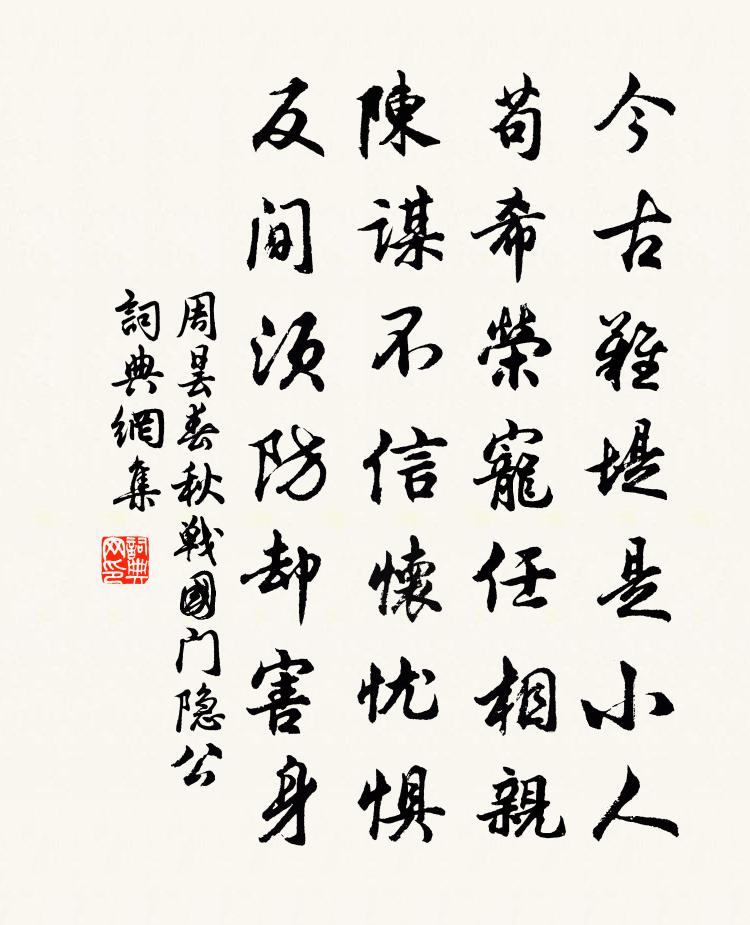 今古難堤是小人
苟希榮寵任相親
陳謀不信懷忧惧
反间须防却害身
周昙春秋戦國门隐公
詞典網集
詞典网印